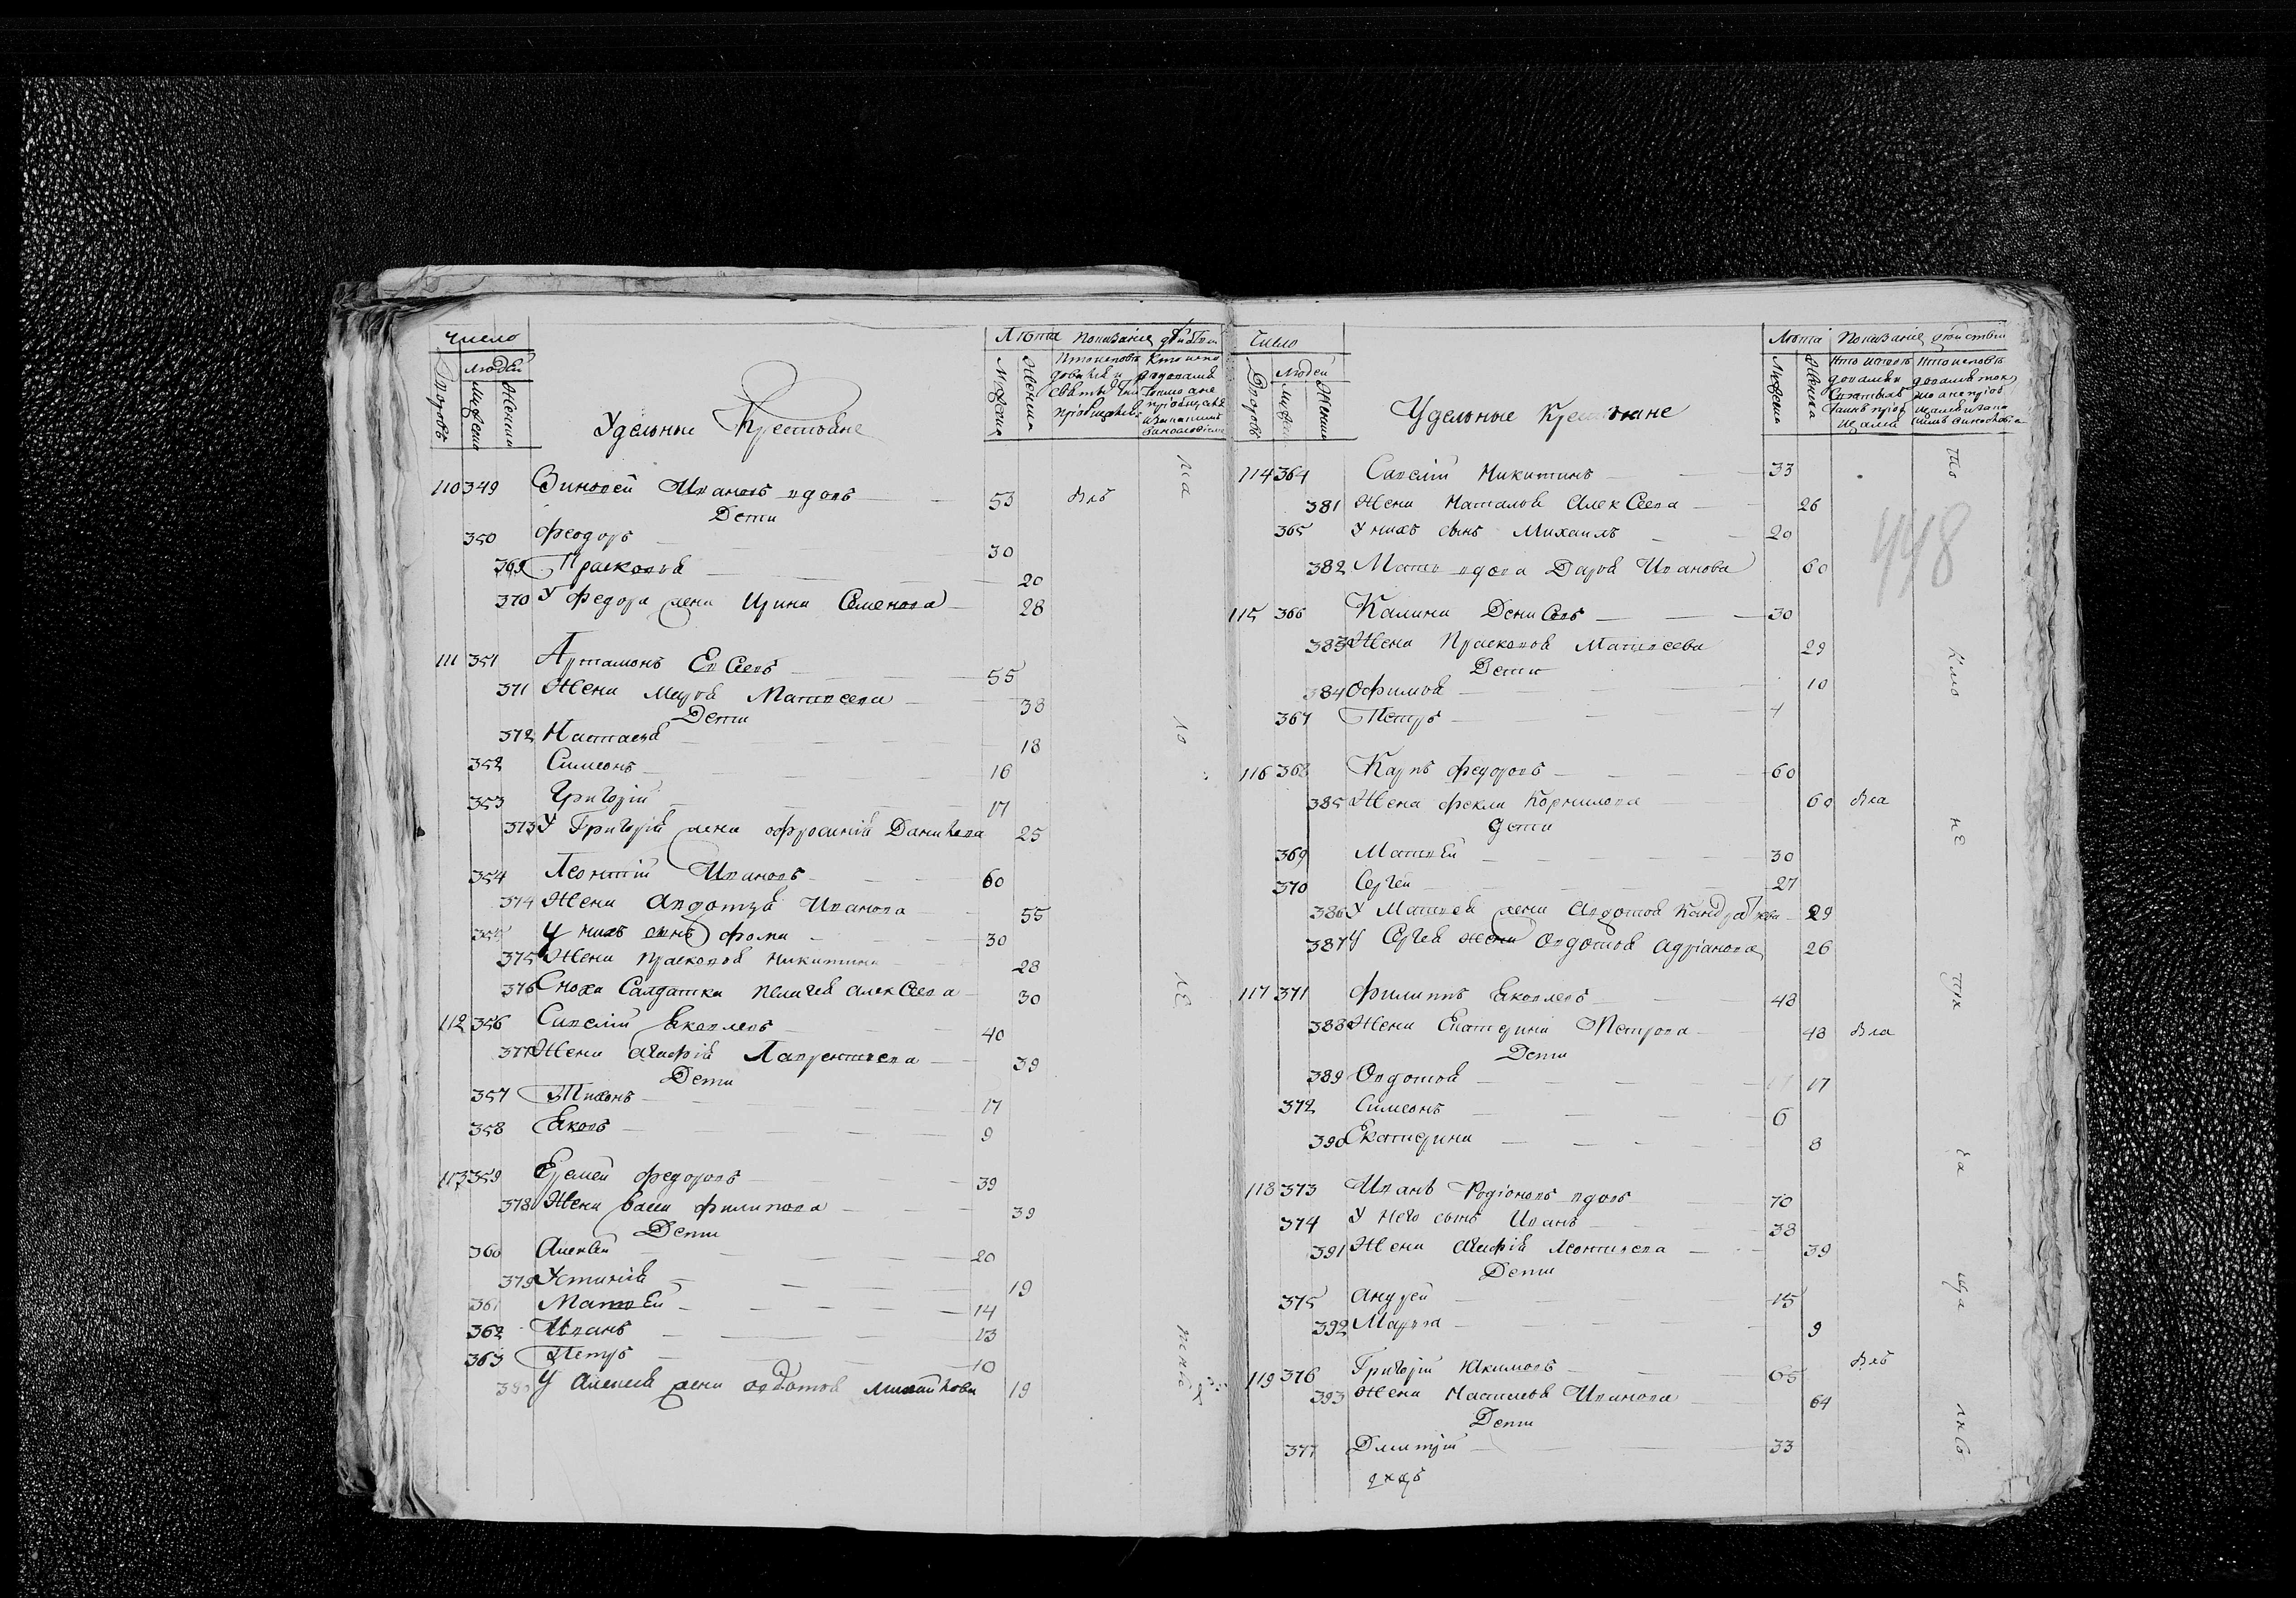 Число
Людей
Дворовъ
Мужеска
Женска
Удельные Крестьяне
Лѣта
Мужеска
Женска
Показаніе действія
110 349 Зиновей Ивановъ вдовъ 53 влъ
Дети
350 Феодоръ 30
369 Прасковья 20
370 У Федора жена Ирина Семенова 28
111 351 Артамонъ Евсеевъ 55
371 Жена Марья Матвеева 38
Дети
372 Настасья 18
352 Симеонъ 16
353 Григорій 17
373 У Григорія жена Офросинія Данилова 25
354 Леонтій Ивановъ 60
374 Жена Авдотья Иванова 55
355 У нихъ сынъ Фома 30
375 Жена Прасковья Никитина 28
376 Сноха Салдатка Пелагея Алексеева 30
112 356 Савелій Яковлевъ 40
377 Жена Агафія Лаврентьева 39
Дети
357 Тихонъ 17
358 Яковъ 9
113 359 Еремей Федоровъ 39
378 Жена Васса Филипова 39
Дети
360 Алексей 20
379 Устинія 19
361 Матвей 14
362 Иванъ 13
363 Петръ 10
380 У Алексея жена Овдотья Михайлова 19
Число
Людей
Дворовъ
Мужеска
Женска
Удельные Крестьяне
Лѣта
Мужеска
Женска
Показаніе действія
448
114 364 Савелій Никитинъ 33
381 Жена Наталья Алексеева 26
365 У нихъ сынъ Михаилъ 20
382 Мать вдова Дарья Иванова 60
115 366 Калина Денисовъ 30
383 Жена Прасковья Матвеева 29
Дети
384 Офимья 10
367 Петръ 4
116 368 Карпъ Федоровъ 60
385 Жена Фекла Корнилова 60 вла
Дети
369 Матвей 30
370 Сергей 27
386 У Матвея жена Авдотья 29
387 У Сергея жена Овдотья Адріанова 26
117 371 Филиппъ Яковлевъ 48
388 Жена Екатерина Петрова 48 вла
Дети
389 Овдотья 17
372 Симеонъ 6
390 Екатерина 8
118 373 Иванъ Родіоновъ вдовъ 70
374 У него сынъ Иванъ 38
391 Жена Агафія Леонтьева 39
Дети
375 Андрей 15
392 Марѳа 9
119 376 Григорій Якимовъ 65 влъ
393 Жена Наталья Иванова 64
Дети
377 Дмитрій 33